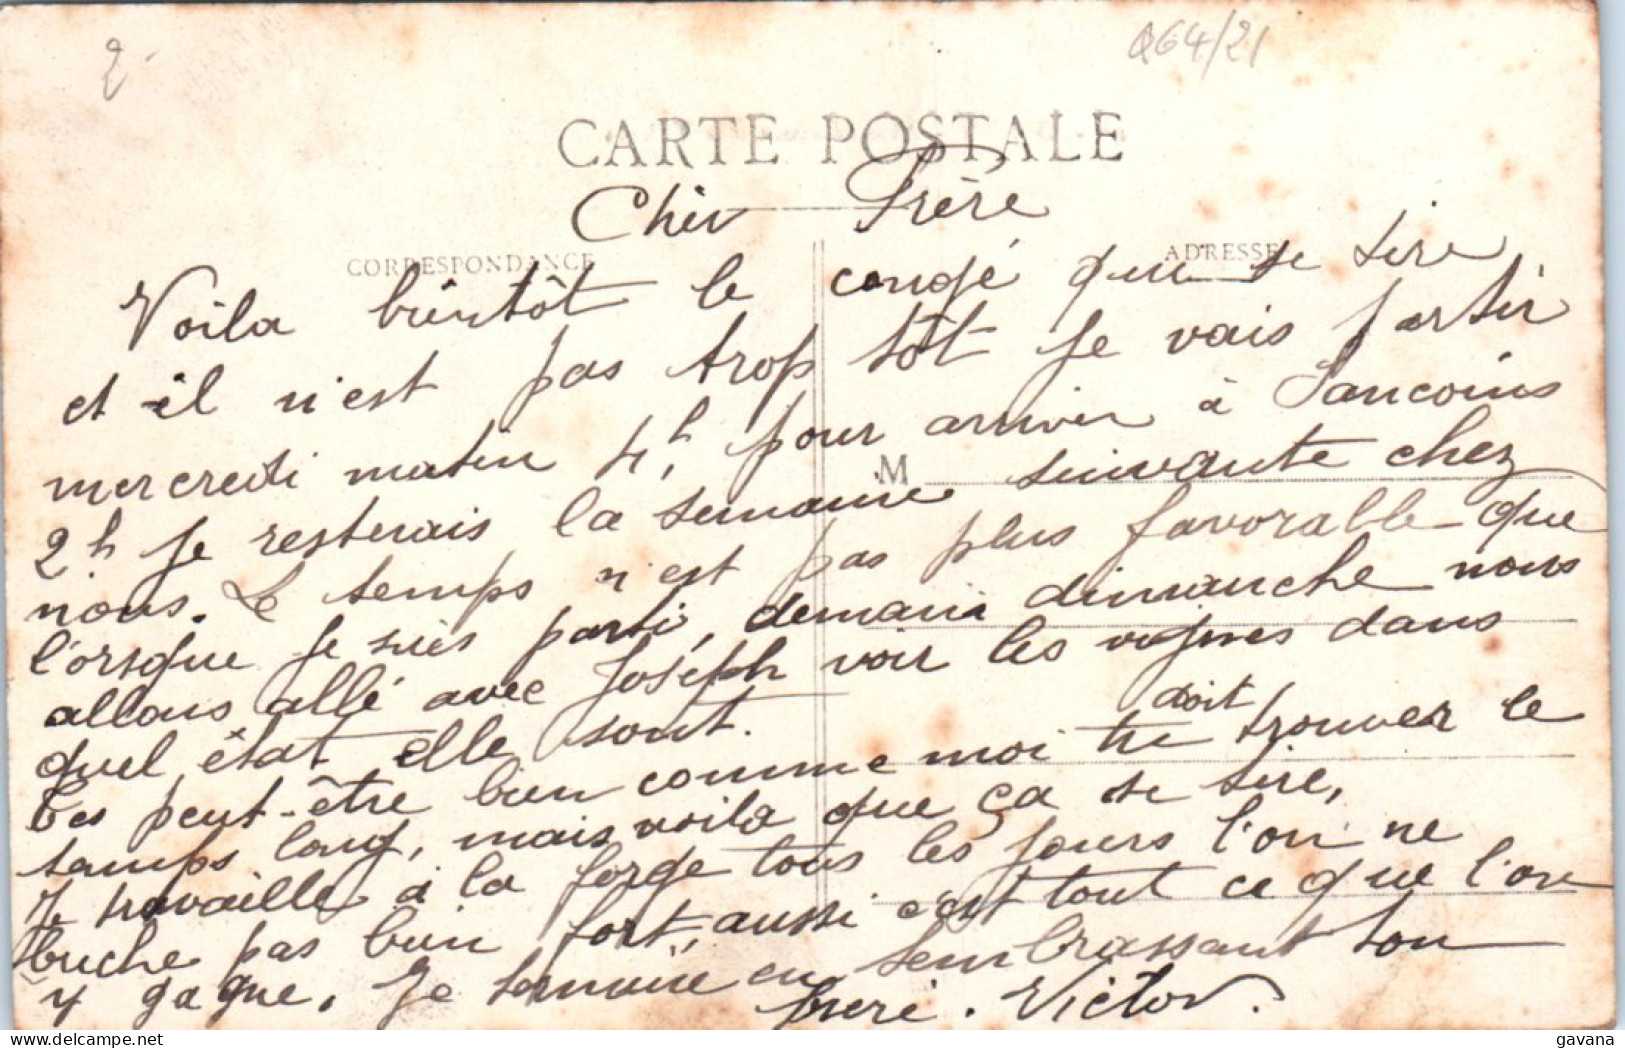 2
Q64/21
CARTE POSTALE
Cher Frère
CORRESPONDANCE
ADRESSE
Voila bientôt le congé qui se tire
et il n'est pas trop tôt je vais partir
mercredi matin 4h, pour arriver à Sancoins
M
2h je resterais la semaine suivante chez
nous. Le temps n'est pas plus favorable que
l'orsque je suis parti, demain dimanche nous
allons allé avec Joseph voir les vignes dans
quel état elle sont.
doit
peut-être bien comme moi tu trouver le
temps long, mais voila que ça se tire,
Je travaille à la forge tous les jours l'on ne
buche pas bien fort, aussi c'est tout ce que l'on
y gagne. Je termine en t'embrassant ton
frère. Victor.
delcampe.net
gavana